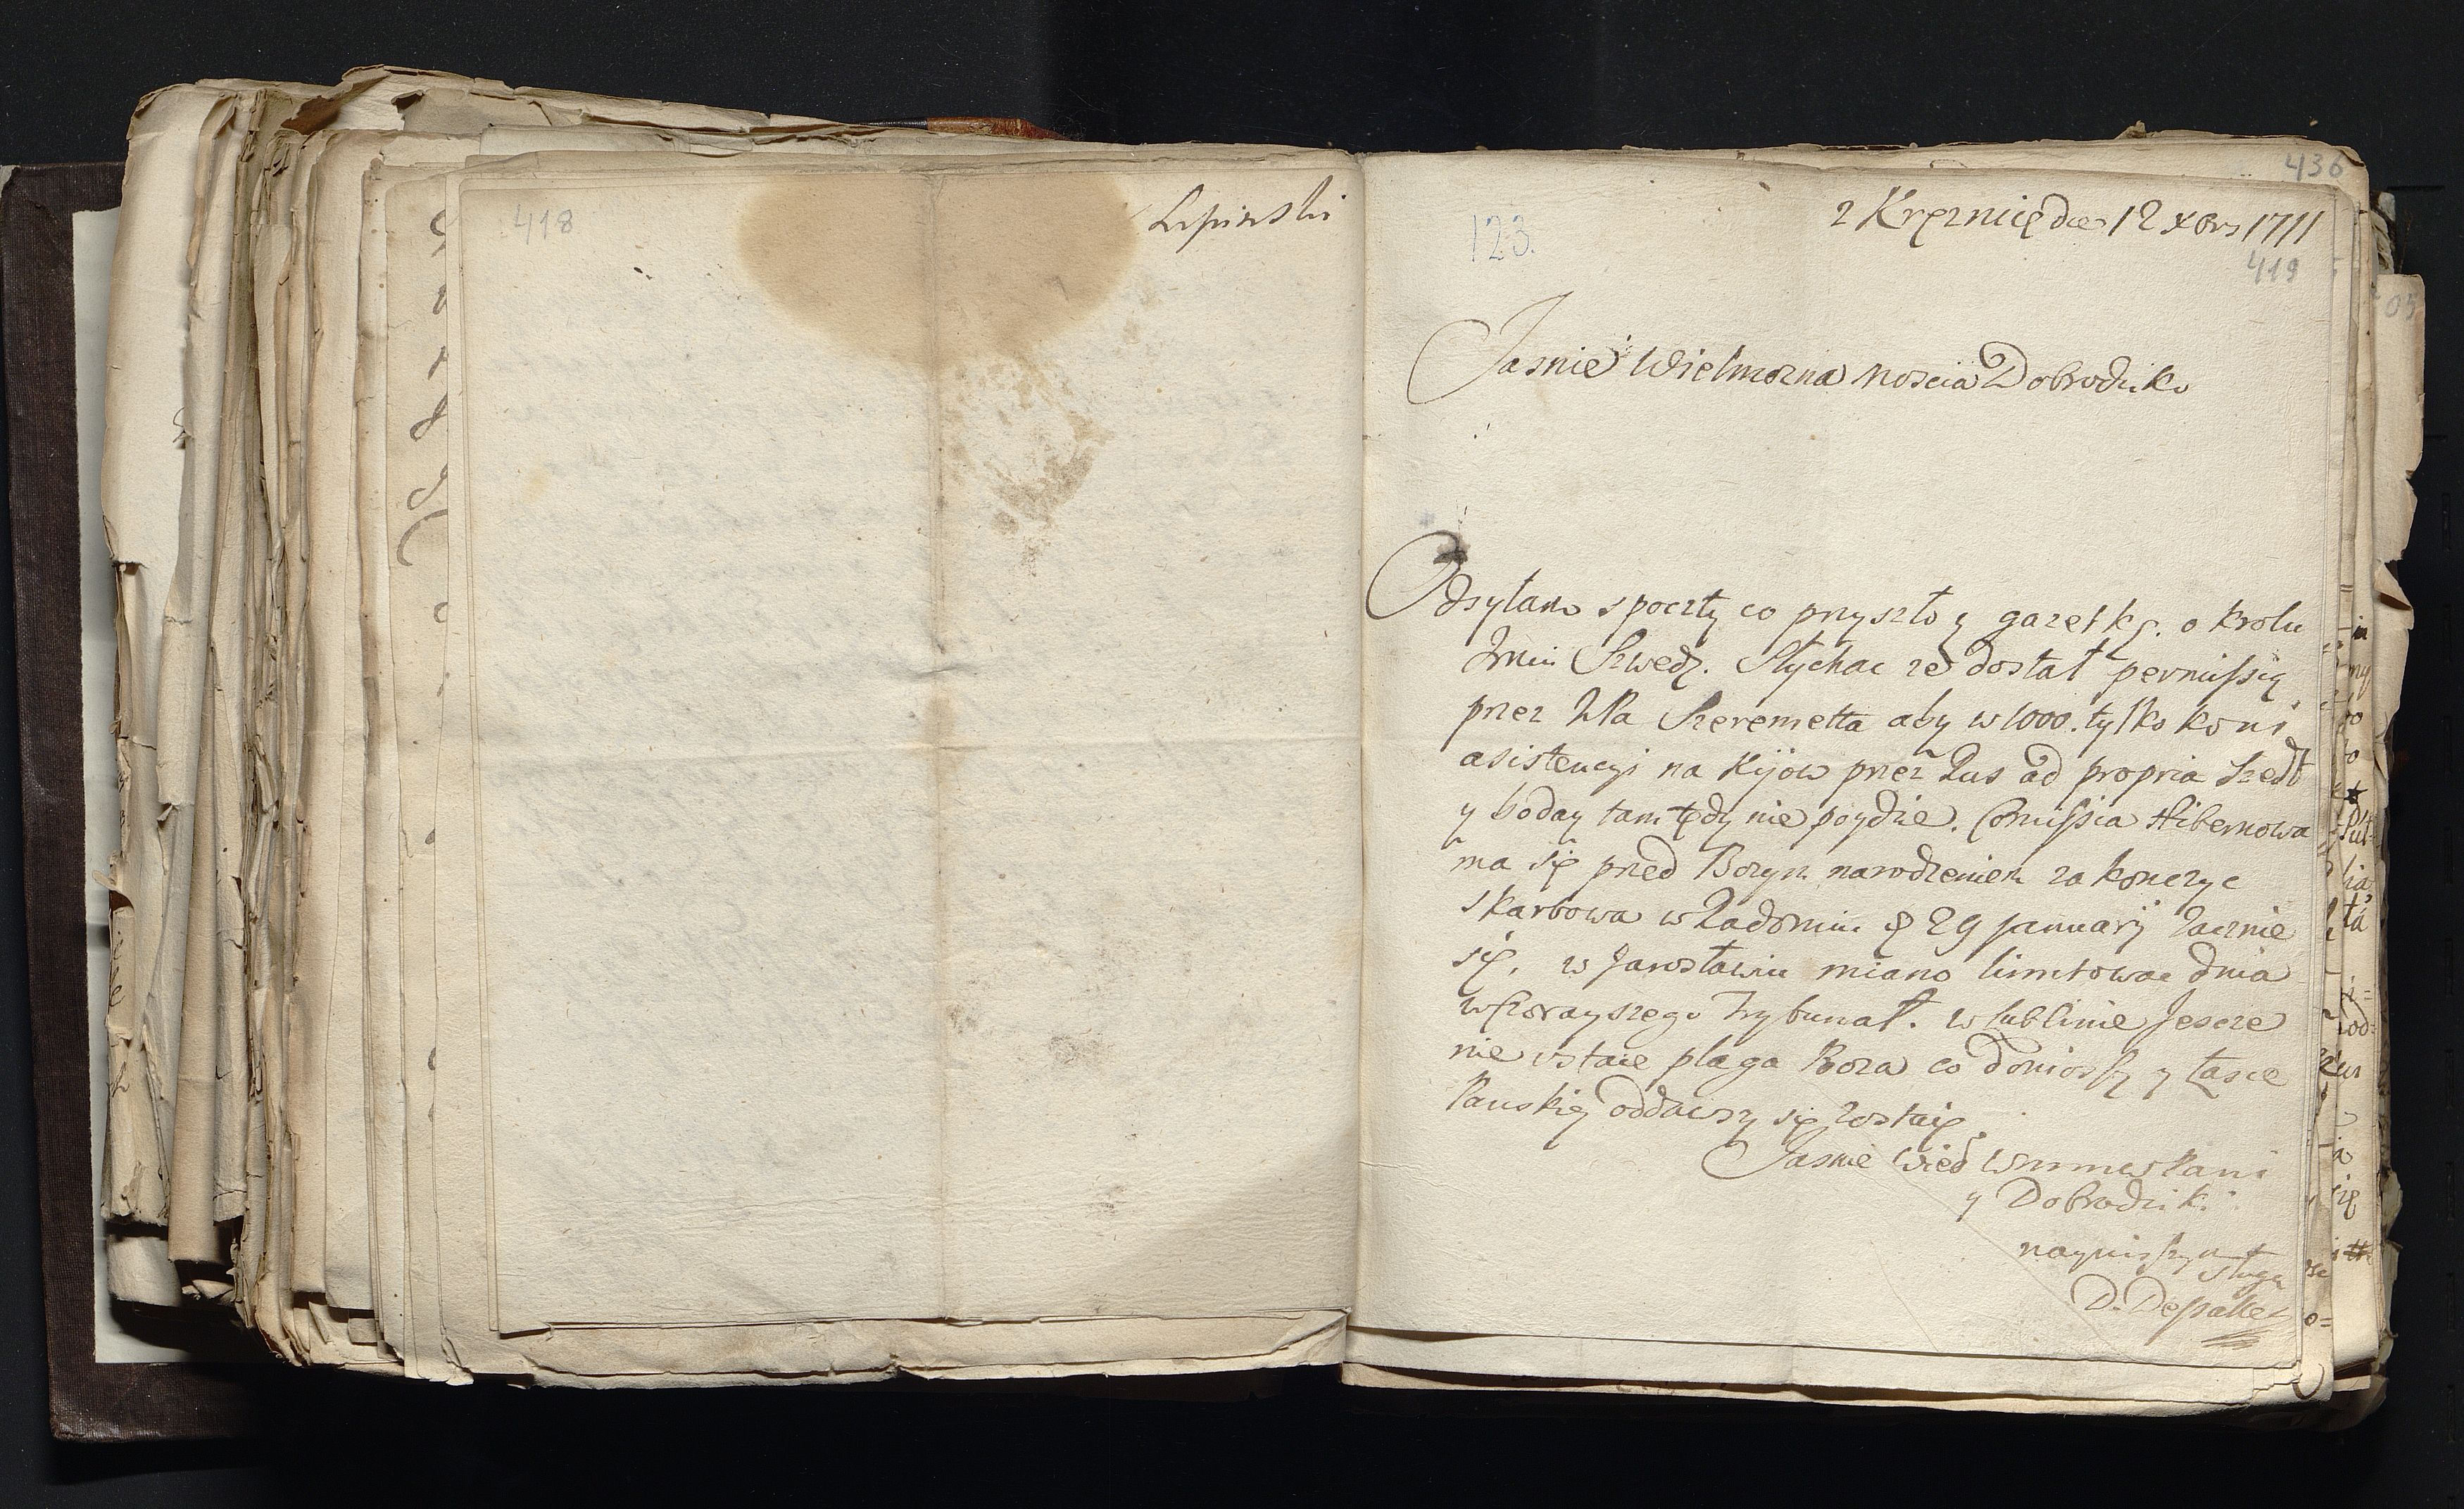 418
Lipinski
436
123.
z Kręznicę die 12 xbrs 1711
419
Jasnie Wielmozna Moscia Dobrodziko
Odsyłam s poczty co przyszło y gazetkę. o Krolu
Jmci Szwedz. Słychac ze dostał permissią
przez Szeremetta aby w 1000. tylko koni
asistencyi na Kijow przez Rus ad propria szedł
y boday tamtędy nie poydzie. Comissia Hibernowa
ma się przed Bozym narodzeniem zakonczyc
skarbowa w Radomiu 29 january zacznie
się, w Jarosławiu miano limitowac dnia
wczorayszego Trybunał. w Lublinie Jescze
nie ustaie plaga Boza co doniosszy y łasce
Panskiey oddawszy się zostaię
Jasnie Wiel Pani
y Dobrodziki
nayniszym sługą
D. Despalle